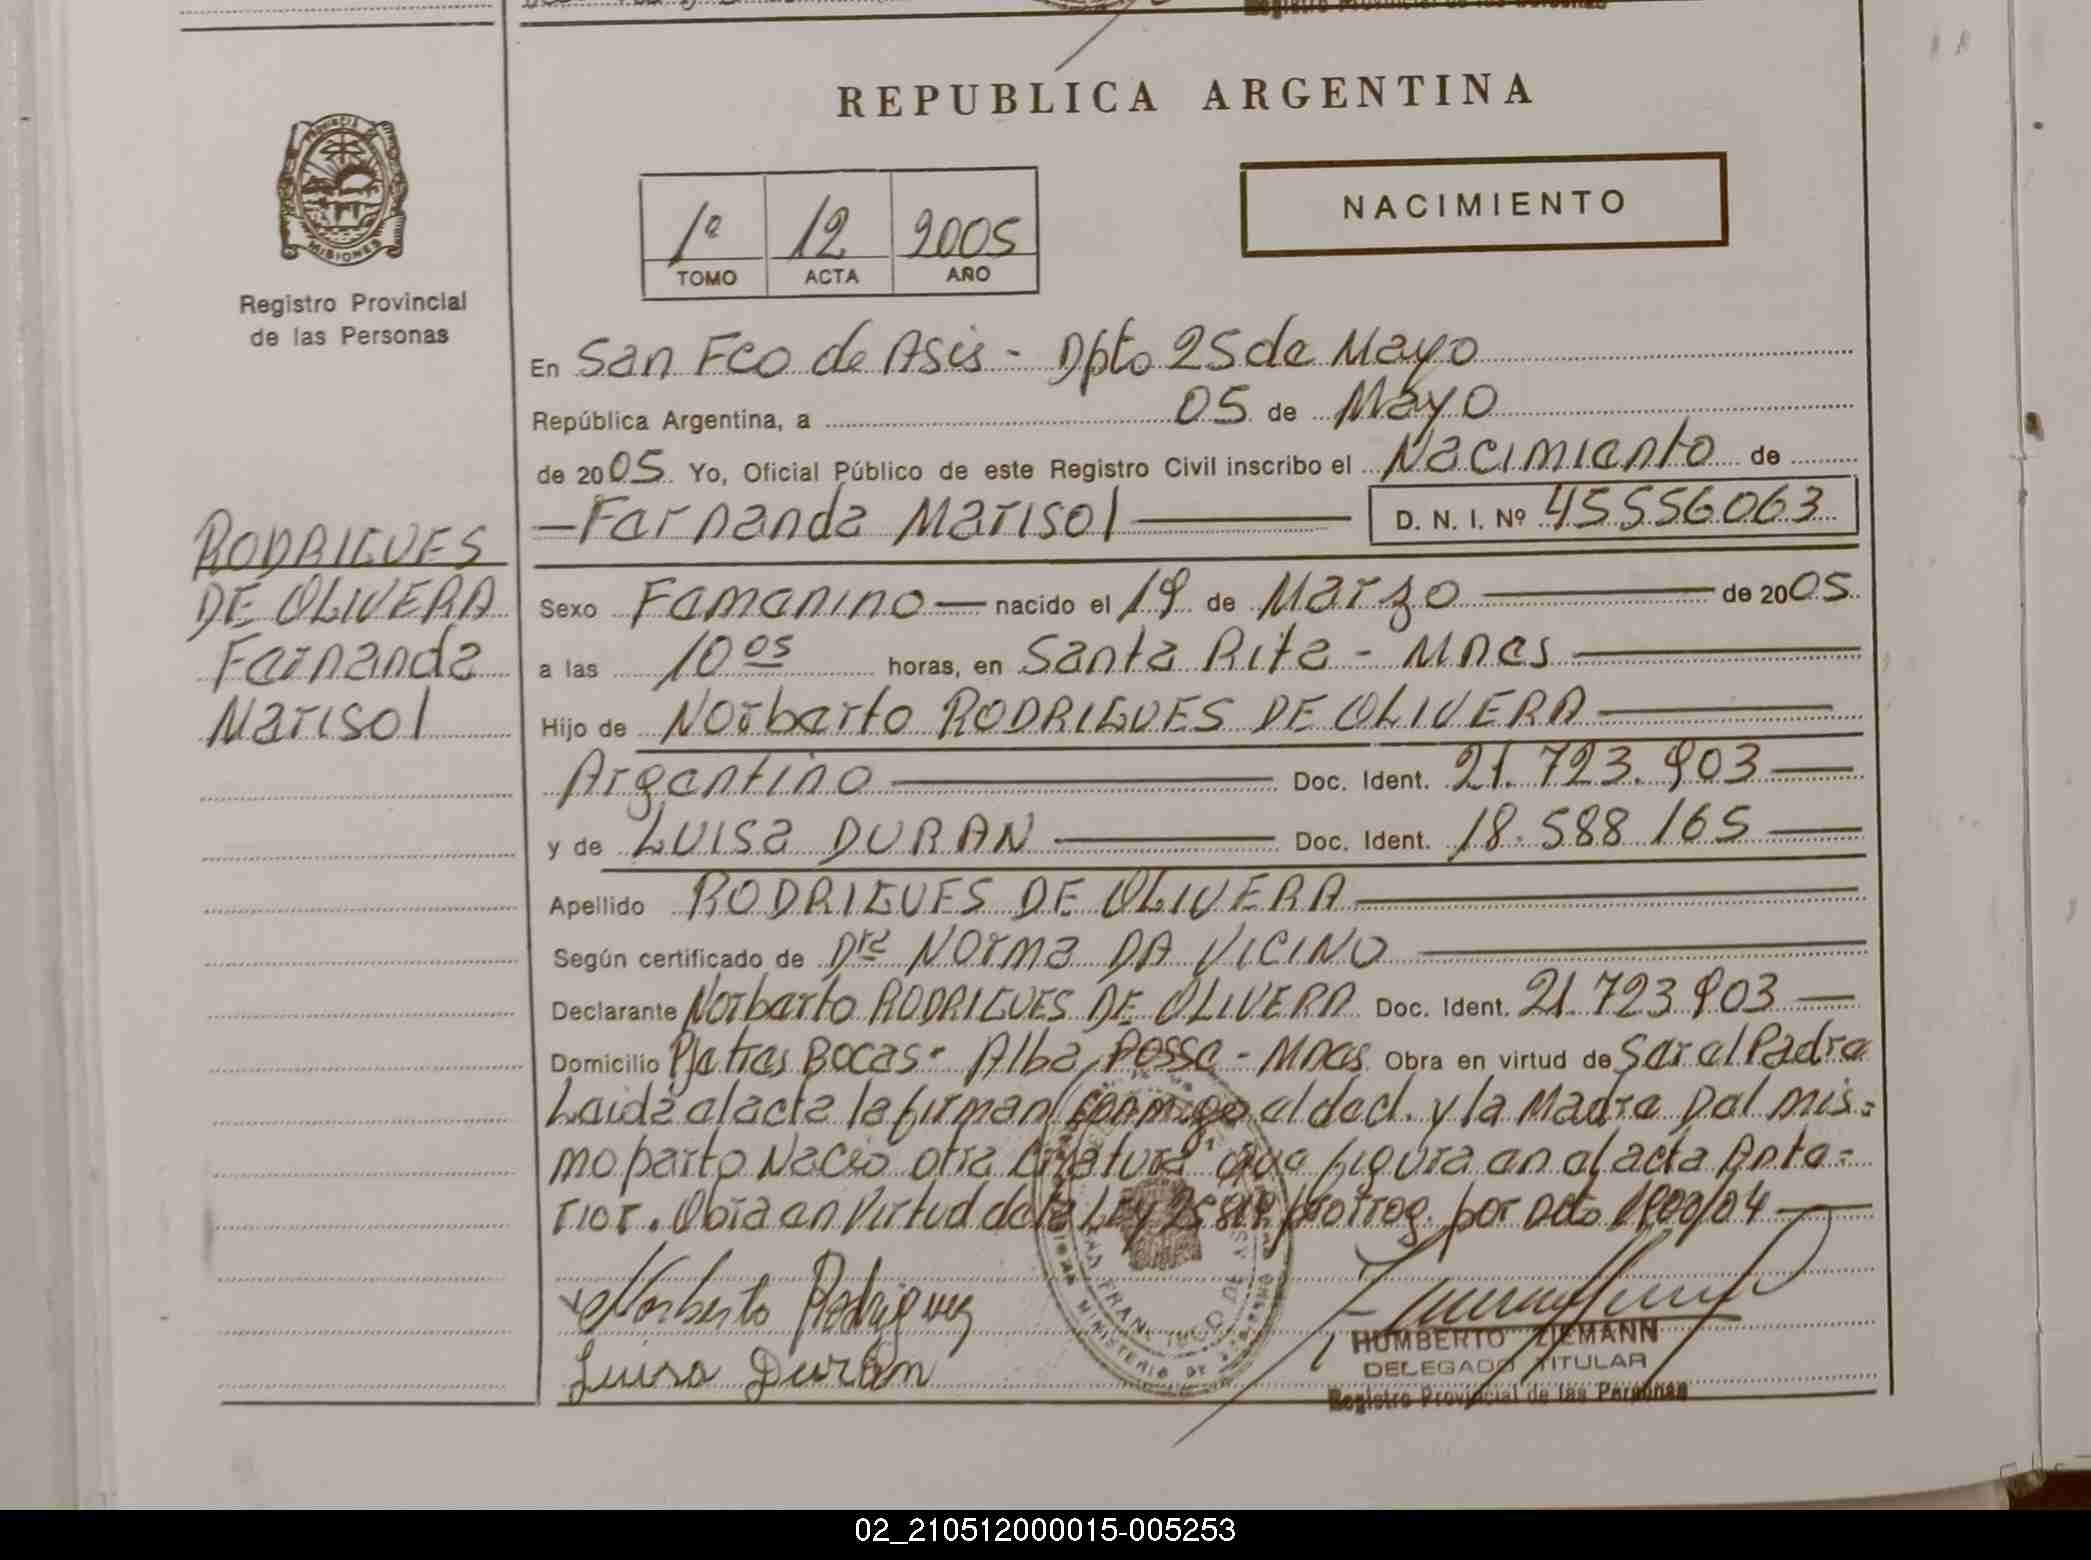 REPUBLICA ARGENTINA
PROVINCIA DE MISIONES
Registro Provincial
de las Personas
1º 12 2005
TOMO ACTA AÑO
NACIMIENTO
En San Fco de Asis - Dpto 25 de Mayo
República Argentina, a 05 de Mayo
de 2005. Yo, Oficial Público de este Registro Civil inscribo el Nacimiento de
Fernanda Marisol D. N. I. Nº 45556063
RODRIGUES
DE OLIVERA
Fernanda
Marisol
Sexo Femenino nacido el 19 de Marzo de 2005
a las 10 05 horas, en Santa Rita - Mnes
Hijo de Norberto RODRIGUES DE OLIVERA
Argentino Doc. Ident. 21.723.903
y de LUISA DURAN Doc. Ident. 18.588.165
Apellido RODRIGUES DE OLIVERA
Según certificado de Dra Norma DA VICINO
Declarante Norberto RODRIGUES DE OLIVERA Doc. Ident. 21.723.903
Domicilio Pje tres Bocas - Alba Posse - Mnes Obra en virtud de Ser el Padre
Leida el acta la firman conmigo el decl. y la Madre Del mis=
mo parto Nacio otra criatura que figura en el acta Ante=
rior. Obra en Virtud de la Ley 25819 prorrog. por Dcto 1900/04
Norberto Rodrigues
Luisa Durán
SAN FRANCISCO DE ASIS
MINISTERIO DE
HUMBERTO ZIEMANN
DELEGADO TITULAR
Registro Provincial de las Personas
02_210512000015-005253